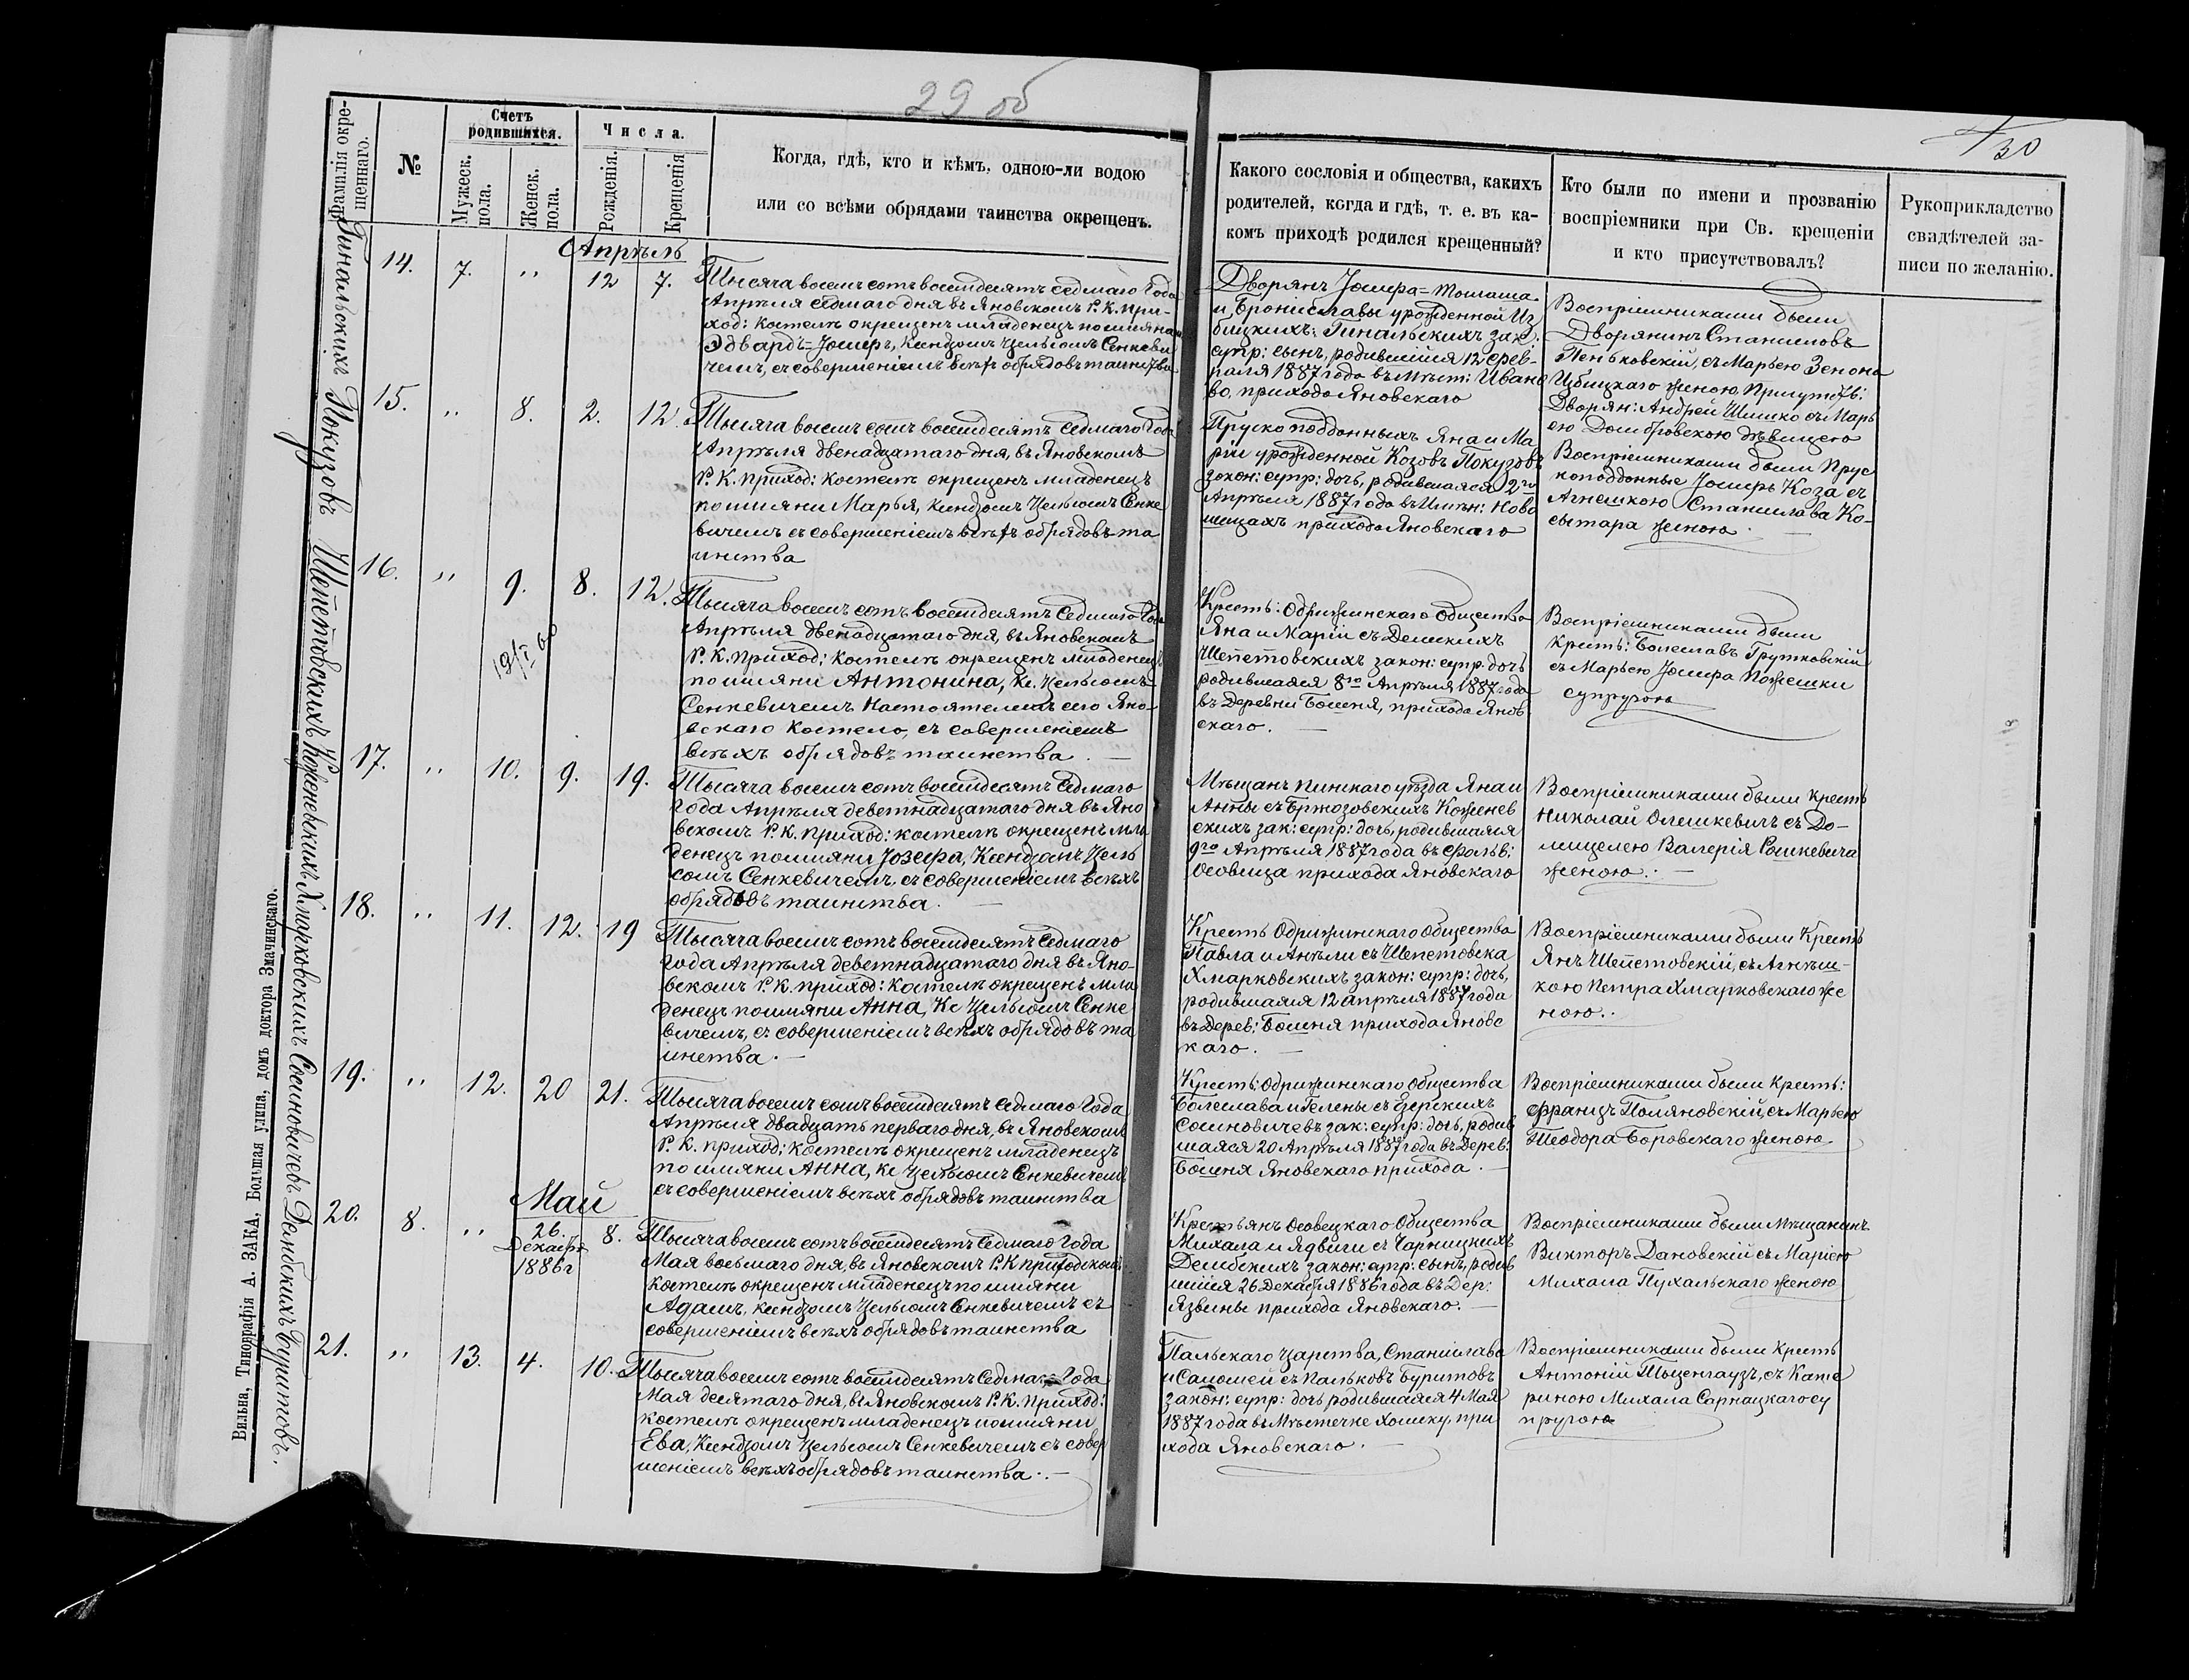 29 об
30
Фамилія окре-
щеннаго.
№
Счетъ
родившихся.
Мужеск.
пола.
Женск.
пола.
Числа.
Рожденія.
Крещенія
Когда, гдѣ, кто и кѣмъ, одною-ли водою
или со всѣми обрядами таинства окрещенъ.
Какого сословія и общества, какихъ
родителей, когда и гдѣ, т. е. въ ка-
комъ приходѣ родился крещенный?
Кто были по имени и прозванію
воспріемники при Св. крещеніи
и кто присутствовалъ?
Рукоприкладство
свадѣтелей за-
писи по желанію.
Апрѣль
Гинальскихъ
14. 7. „ 12 7.
Тысяча восемь сотъ восемдесятъ седмаго Года
Апрѣля седмаго дня въ Яновскомъ Р. К. при-
ход: костелѣ окрещенъ младенецъ по имяни
Эдвардъ=Іосифъ, Ксендзомъ Цельсомъ Сенкеви
чемъ, съ совершеніемъ всѣхъ обрядовъ таинства
Дворянъ Іосифа=Томаша
и Брониславы урожденной Из
бицкихъ: Гинальскихъ зак:
супр: сынъ, родившійся 12 фев-
раля 1887 года въ Мѣст: Ивано
во, прихода Яновскаго
Воспріемниками были
Дворянинъ Станиславъ
Пеньковскій, съ Марьею Зенона
Избицкаго женою, Присутств:
Дворян: Андрей Шишко съ Марь
ею Домбровскою дѣвицею
Покузовъ
15. „ 8. 2. 12.
Тысяча восемь сотъ восемдесятъ седмаго Года
Апрѣля двенадцатаго дня, въ Яновскомъ
Р. К. приход: костелѣ окрещенъ младенецъ
по имяни Марья, Ксендзомъ Цельсомъ Сенке
вичемъ съ совершеніемъ всѣхъ обрядовъ та
инства
Пруско подданныхъ Яна и Ма
ріи урожденной Козовъ Покузовъ
закон: супр: дочь, родившаяся 2го
Апрѣля 1887 года въ Имѣн: Ново
шицахъ прихода Яновскаго
Воспріемниками были Прус
коподданные Іосифъ Коза съ
Агнешкою Станислава Ко-
сытара женою.
Шепетовскихъ
16. „ 9. 8. 12.
Тысяча восемь сотъ восемдесятъ Седмаго Года
Апрѣля двенадцатаго дня, въ Яновскомъ
Р. К. приход: костелѣ окрещенъ младенецъ
по имяни Антонина, Кс. Цельсомъ
Сенкевичемъ Настоятелемъ сего Яно-
вскаго костела, съ совершеніемъ
всѣхъ обрядовъ таинства.
Крестъ: Одрижинскаго Общества
Яна и Маріи съ Демскихъ
Шепетовскихъ закон: супр: дочь
родившаяся 8го Апрѣля 1887 года
въ Деревни Бошня, прихода Янов
скаго.
Воспріемниками были
Крестъ: Болеславъ Грутковскій
съ Марьею Іосифа Пожешки
супругою
Коженевскихъ
17. „ 10. 9. 19.
Тысяча восемь сотъ восемдесятъ Седмаго
Года Апрѣля деветнадцатаго дня въ Яно
вскомъ Р. К. приход: костелѣ окрещенъ мла
денецъ по имяни Іозефа, Ксендзомъ Цель
сомъ Сенкевичемъ, съ совершеніемъ всѣхъ
обрядовъ таинства.
Мѣщанъ Пинскаго уѣзда Яна и
Анны съ Бржозовскихъ Коженев
скихъ зак: супр: дочь, родившаяся
9го Апрѣля 1887 года въ Фольв:
Осовица прихода Яновскаго
Воспріемниками были Крестъ
Николай Олешкевичъ съ До-
мицелею Валерія Сошкевича
женою.
Хмарковскихъ
18. „ 11. 12. 19
Тысяча восемь сотъ восемдесятъ Седмаго
Года Апрѣля деветнадцатаго дня въ Яно-
вскомъ Р. К. приход: костелѣ окрещенъ мла
денецъ по имяни Анна, Кс Цельсомъ Сенке
вичемъ, съ совершеніемъ всѣхъ обрядовъ та
инства.
Крестъ Одрижинскаго Общества
Павла и Анѣли съ Шепетовска
Хмарковскихъ закон: супр: дочь,
родившаяся 12 Апрѣля 1887 года
въ Дерев: Бошня прихода Яновс
каго.
Воспріемниками были Крестъ
Янъ Шепетовскій, съ Агнѣш-
кою Петра Хмарковскаго же
ною.
Сосиновичевъ
19. „ 12. 20 21.
Тысяча восемь сотъ восемдесятъ седмаго Года
Апрѣля двадцать перваго дня, въ Яновскомъ
Р. К. приход: костелѣ окрещенъ младенецъ
по имяни Анна, Кс Цельсомъ Сенкевичемъ
съ совершеніемъ всѣхъ обрядовъ таинства
Крестъ: Одрижинскаго Общества
Болеслава и Гелены съ Езерскихъ
Сосиновичевъ зак: супр: дочь, родив
шаяся 20 Апрѣля 1887 года въ Дерев:
Бошня Яновскаго прихода.
Воспріемниками были Крестъ:
Францъ Поляновскій, съ Марьею
Теодора Боровскаго женою
Май
Дембскихъ
20. 8. „ 26. Декабря 1886 г 8.
Тысяча восемь сотъ восемдесятъ седмаго Года
Мая восьмаго дня, въ Яновскомъ Р. К приходском
костелѣ окрещенъ младенецъ по имяни
Адамъ, Ксендзомъ Цельсомъ Сенкевичемъ съ
совершеніемъ всѣхъ обрядовъ таинства
Крестьянъ Осовецкаго Общества
Михала и Ядвиги съ Чарницкихъ
Дембскихъ закон: супр: сынъ, родив
шійся 26 Декабря 1886 года въ Дер:
Язвины прихода Яновскаго.
Воспріемниками были Мѣщанинъ
Викторъ Дановскій съ Маріею
Михала Пухальскаго женою
Буритовъ.
21. „ 13. 4. 10.
Тысяча восемь сотъ восемдесятъ Седмаго Года
Мая десятаго дня, въ Яновскомъ Р. К. приход:
костелѣ окрещенъ младенецъ по имяни
Ева, Ксендзомъ Цельсомъ Сенкевичемъ съ совер
шеніемъ всѣхъ обрядовъ таинства.
Пальскаго Царства, Станислава
и Саломеи съ Пальковъ Буритовъ
закон: супр: дочь родившаяся 4 Мая
1887 года въ Мѣстечке Хомску, при
хода Яновскаго.
Воспріемниками были Крестъ
Антоній Тызенгаузъ, съ Кате
риною Михала Сарнацкаго су
пругою
Вильна, Типографія А. ЗАКА, Большая улица, домъ доктора Змачинскаго.